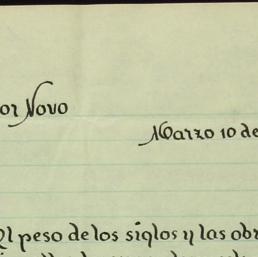 or Novo
Marzo 10 de
El peso de los siglos y las obr